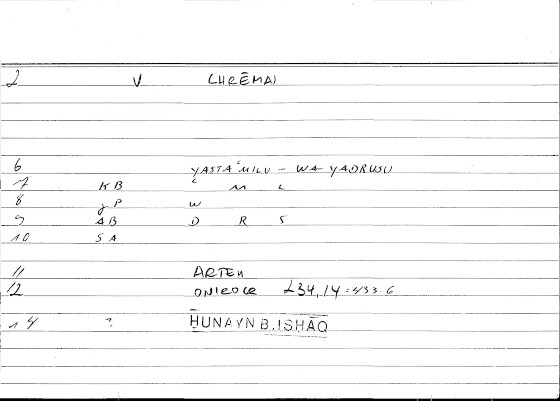 2 V CHRĒMAI
6 YASTAʿMILU - WA-YADRUSU
7 KB ʿ M L
8 JP W
9 AB D R S
10 SA
11 ARTEM
12 ONIROCR 234,14=433.6
14 ? ḤUNAYN B. ISḤĀQ